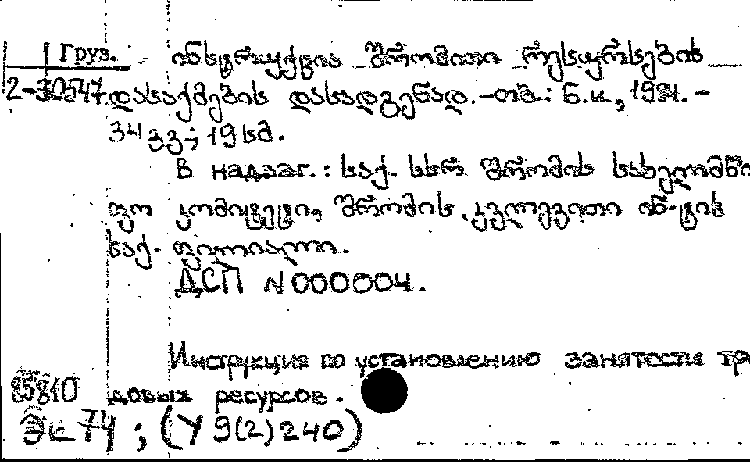 Груз. ინსტრუქცია შრომითი რესურსების
2-30547 დასაქმების დასადგენად. -თბ.: ნ.ი., 1981. -
34 გვ; 19 სმ.
В надзаг.: საქ. სსრ შრომის სახელმწი
ფო კომიტეტი, შრომის კვლევითი ინ-ტის
საქ. ფილიალი.
ДСП N000004.
Инструкция по установлению занятости тру
85810 довых ресурсов.
Эс 74 ; (У 9(2)240)